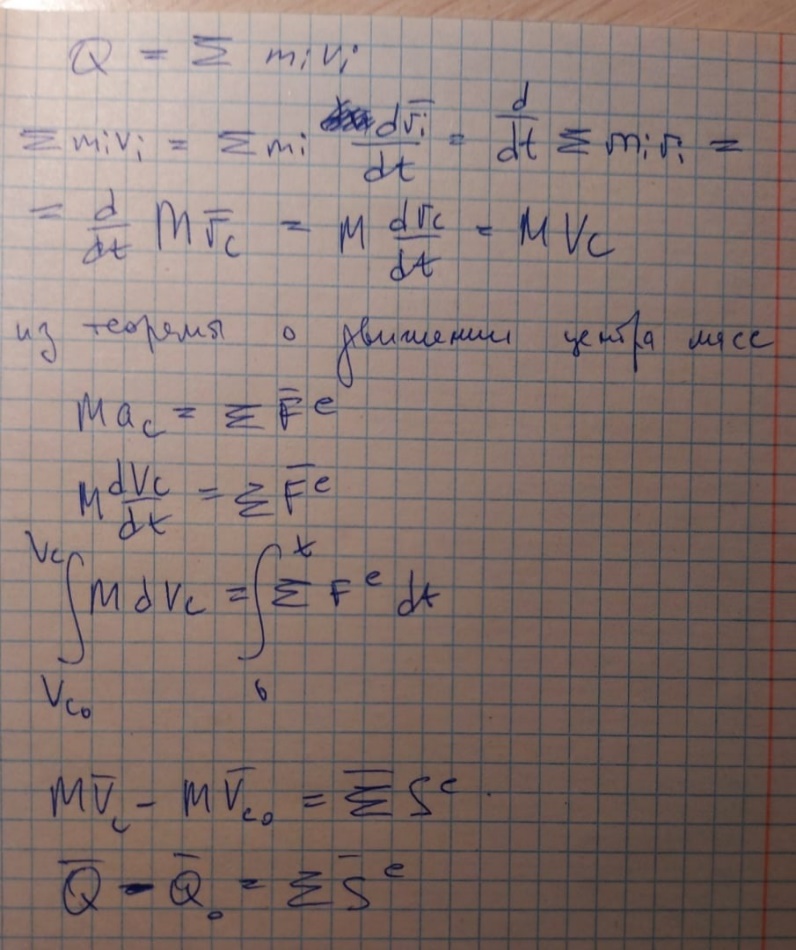 Q = Σ mᵢVᵢ
Σ mᵢVᵢ = Σ mᵢ dr̅ᵢ/dt = d/dt Σ mᵢrᵢ =
= d/dt M r̅_C = M dr̅_C/dt = M V_C
из теоремы о движении центра масс
M a_C = Σ F̅ᵉ
M dV_C/dt = Σ F̅ᵉ
∫_{V_{C₀}}^{V_C} M dV_C = ∫_0^t Σ Fᵉ dt
M V̅_C - M V̅_{C₀} = Σ̅ Sᵉ.
Q̅ - Q̅₀ = Σ S̅ᵉ